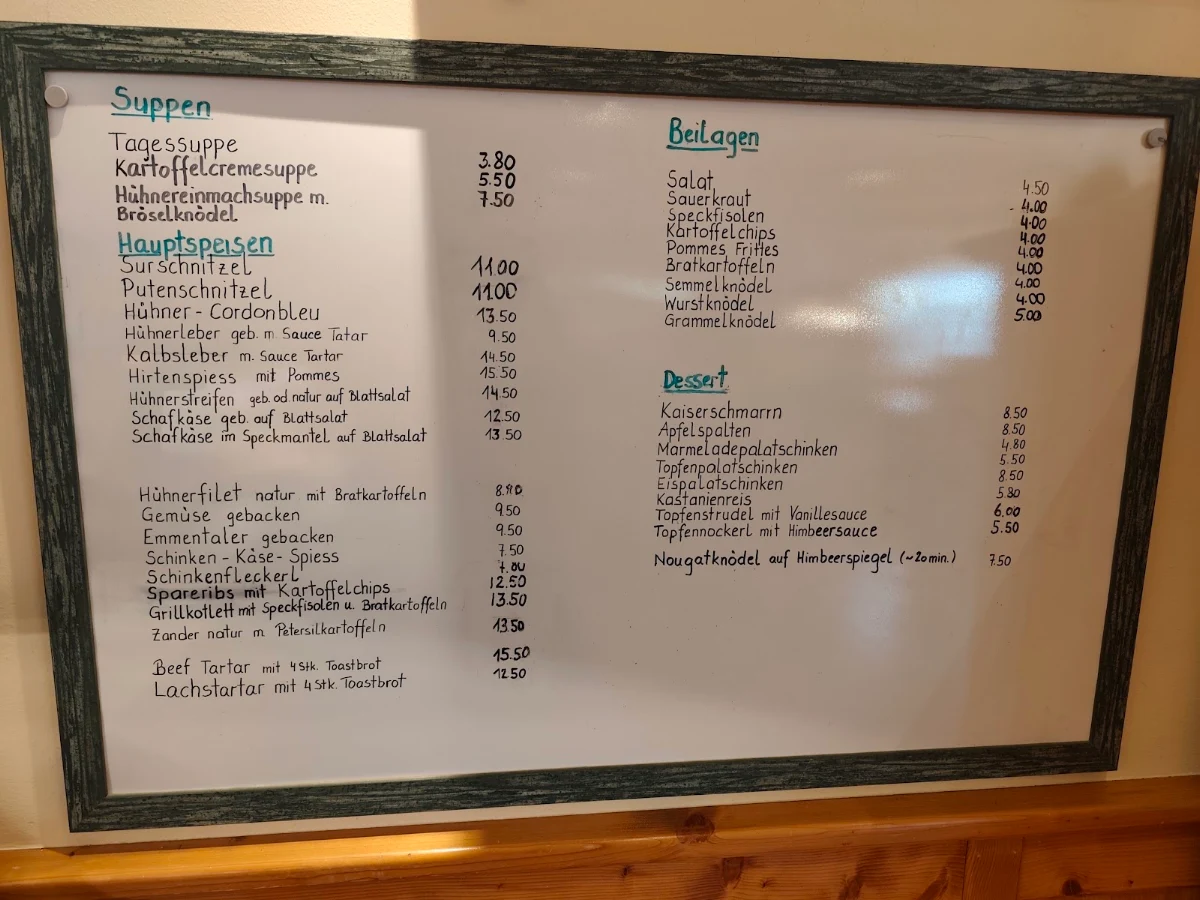 Suppen
Tagessuppe 3.80
Kartoffelcremesuppe 5.50
Hühnereinmachsuppe m. 7.50
Bröselknödel
Hauptspeisen
Surschnitzel 11.00
Putenschnitzel 11.00
Hühner - Cordonbleu 13.50
Hühnerleber geb. m. Sauce Tatar 9.50
Kalbsleber m. Sauce Tartar 14.50
Hirtenspiess mit Pommes 15.50
Hühnerstreifen geb. od natur auf Blattsalat 14.50
Schafkäse geb. auf Blattsalat 12.50
Schafkäse im Speckmantel auf Blattsalat 13.50
Hühnerfilet natur mit Bratkartoffeln
Gemüse gebacken 9.50
Emmentaler gebacken 9.50
Schinken - Käse - Spiess 7.50
Schinkenfleckerl
Spareribs mit Kartoffelchips 12.50
Grillkotlett mit Speckfisolen u. Bratkartoffeln 13.50
Zander natur m. Petersilkartoffeln 13.50
Beef Tartar mit 4 Stk. Toastbrot 15.50
Lachstartar mit 4 Stk. Toastbrot 12.50
Beilagen
Salat 4.50
Sauerkraut 4.00
Speckfisolen 4.00
Kartoffelchips 4.00
Pommes Frittes 4.00
Bratkartoffeln 4.00
Semmelknödel 4.00
Wurstknödel 4.00
Grammelknödel 5.00
Dessert
Kaiserschmarrn 8.50
Apfelspalten 8.50
Marmeladepalatschinken 4.80
Topfenpalatschinken 5.50
Eispalatschinken 8.50
Kastanienreis 5.80
Topfenstrudel mit Vanillesauce 6.00
Topfennockerl mit Himbeersauce 5.50
Nougatknödel auf Himbeerspiegel (~20min.) 7.50